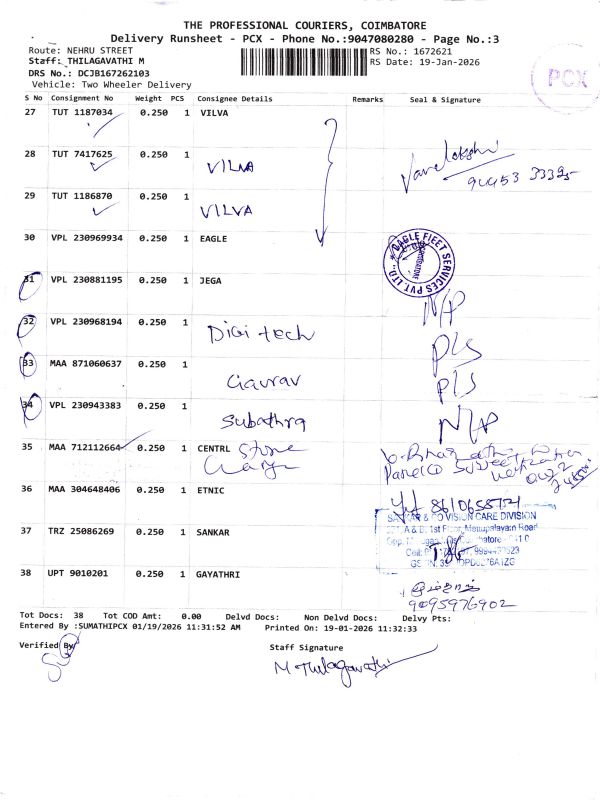 THE PROFESSIONAL COURIERS, COIMBATORE
Delivery Runsheet - PCX - Phone No.:9047080280 - Page No.:3
Route: NEHRU STREET
RS No.: 1672621
Staff: THILAGAVATHI M
RS Date: 19-Jan-2026
DRS No.: DCJB167262103
Vehicle: Two Wheeler Delivery
PCX
S No Consignment No Weight PCS Consignee Details Remarks Seal & Signature
27 TUT 1187034 0.250 1 VILVA
28 TUT 7417625 0.250 1 VILVA
29 TUT 1186870 0.250 1 VILVA
30 VPL 230969934 0.250 1 EAGLE
EAGLE FLEET SERVICES PVT LTD
31 VPL 230881195 0.250 1 JEGA N/P
32 VPL 230968194 0.250 1 Digi tech P/S
33 MAA 871060637 0.250 1 Gaurav P/S
34 VPL 230943383 0.250 1 Subathra N/P
35 MAA 712112664 0.250 1 CENTRL Stone
36 MAA 304648406 0.250 1 ETNIC
VISION CARE DIVISION
1st Floor, Mettupalayam Road
37 TRZ 25086269 0.250 1 SANKAR
38 UPT 9010201 0.250 1 GAYATHRI
9095976902
Tot Docs: 38 Tot COD Amt: 0.00 Delvd Docs: Non Delvd Docs: Delvy Pts:
Entered By :SUMATHIPCX 01/19/2026 11:31:52 AM Printed On: 19-01-2026 11:32:33
Verified By
Staff Signature
M Thilagavathi